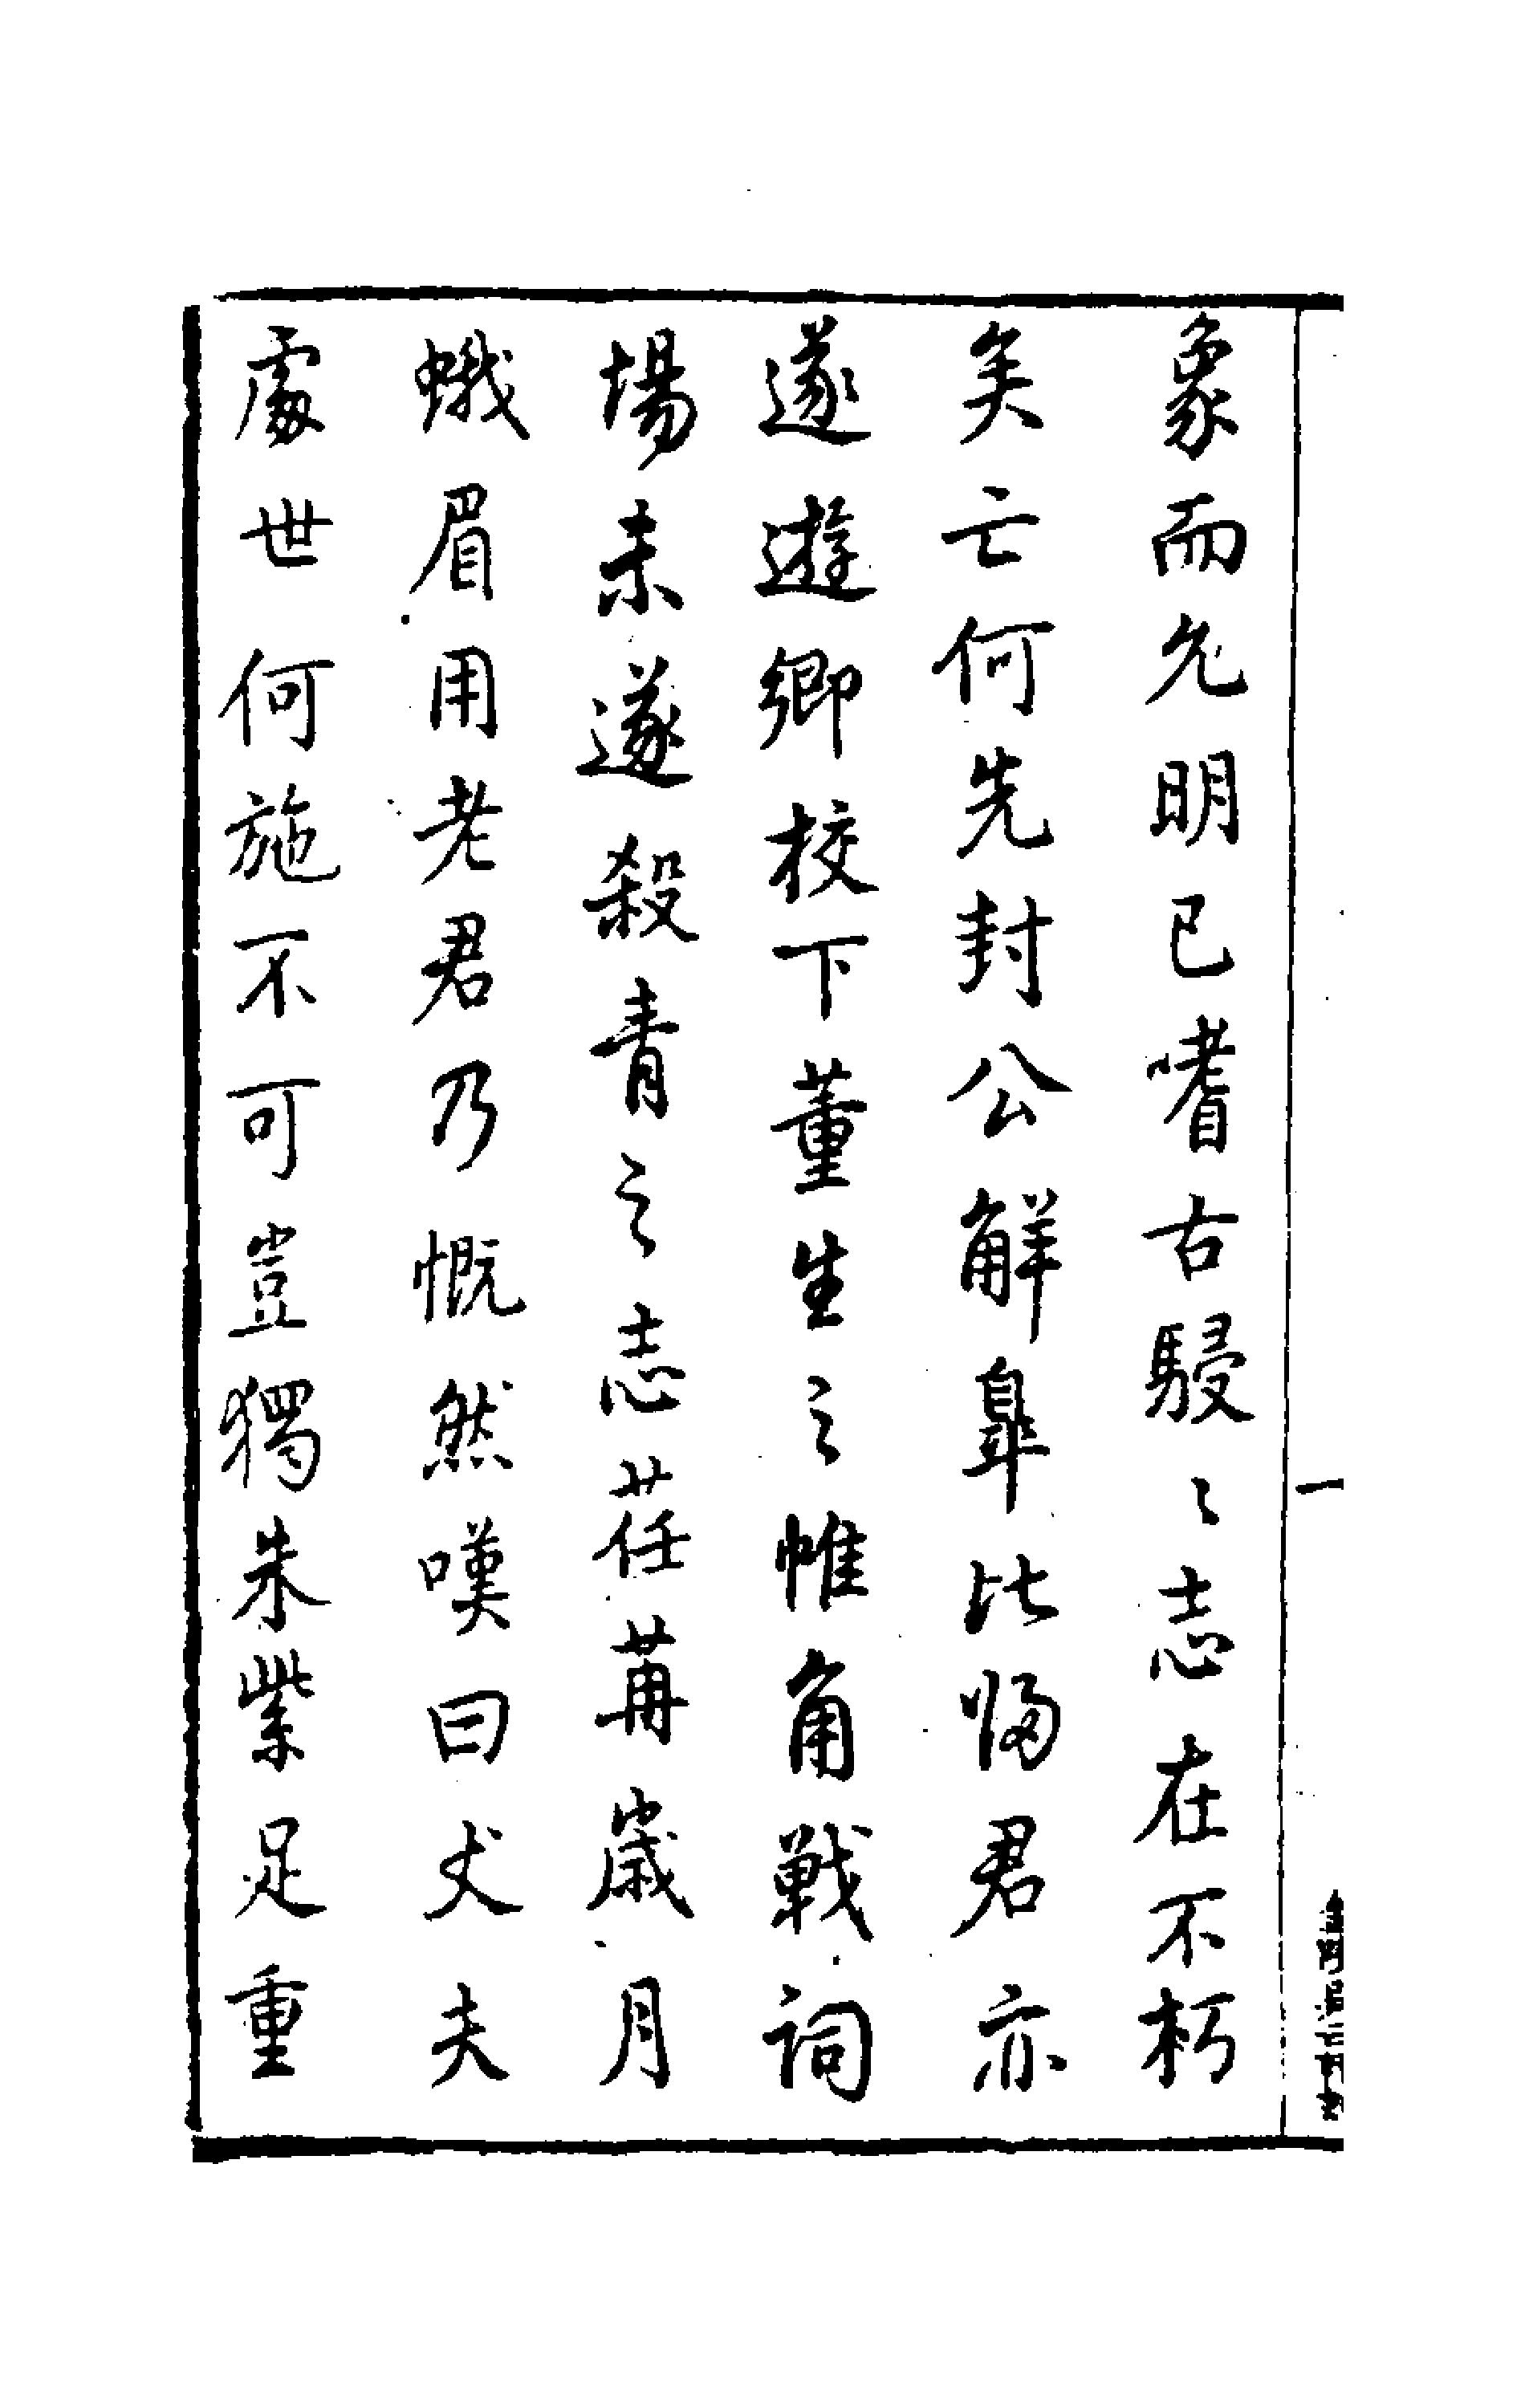 象而允明已嗜古駸〻志在不朽
矣亡何先封公解臯比歸君亦
遂遊鄉校下董生之帷角戰詞
場未遂殺青之志荏苒歲月
蛾眉用老君乃慨然嘆曰丈夫
處世何施不可豈獨朱紫足重
一